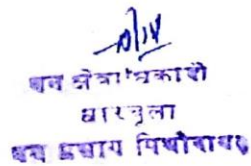 वन क्षेत्राधिकारी
धारचुला
वन प्रभाग पिथौरागढ़